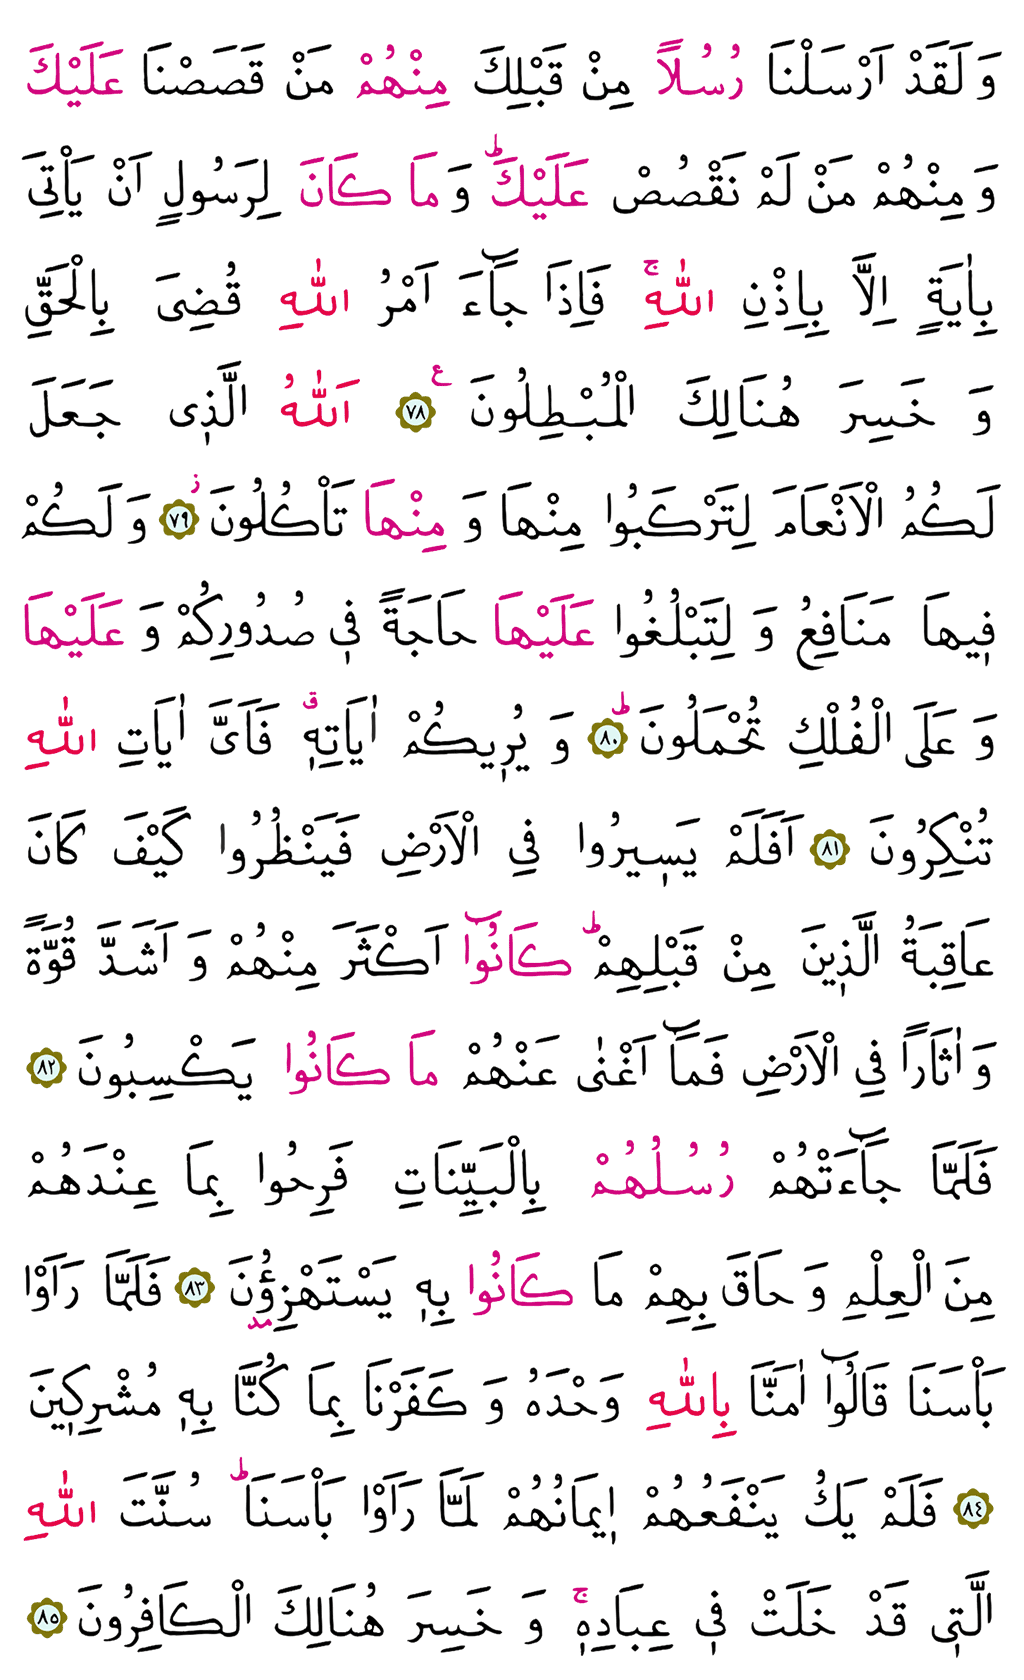 وَ لَقَدْ اَرْسَلْنَا رُسُلاً مِنْ قَبْلِكَ مِنْهُمْ مَنْ قَصَصْنَا عَلَيْكَ
وَ مِنْهُمْ مَنْ لَمْ نَقْصُصْ عَلَيْكَۜ وَ مَا كَانَ لِرَسُولٍ اَنْ يَأْتِىَ
بِاٰيَةٍ اِلَّا بِاِذْنِ اللّٰهِۚ فَاِذَا جَٓاءَ اَمْرُ اللّٰهِ قُضِىَ بِالْحَقِّ
وَ خَسِرَ هُنَالِكَ الْمُبْطِلُونَ ع ﴿٧٨﴾ اَللّٰهُ الَّذِى جَعَلَ
لَكُمُ الْاَنْعَامَ لِتَرْكَبُوا مِنْهَا وَ مِنْهَا تَأْكُلُونَ ز ﴿٧٩﴾ وَ لَكُمْ
فِيهَا مَنَافِعُ وَ لِتَبْلُغُوا عَلَيْهَا حَاجَةً فِى صُدُورِكُمْ وَ عَلَيْهَا
وَ عَلَى الْفُلْكِ تُحْمَلُونَ ط ﴿٨٠﴾ وَ يُرِيكُمْ اٰيَاتِهِ ق فَاَىَّ اٰيَاتِ اللّٰهِ
تُنْكِرُونَ ﴿٨١﴾ اَفَلَمْ يَسِيرُوا فِى الْاَرْضِ فَيَنْظُرُوا كَيْفَ كَانَ
عَاقِبَةُ الَّذِينَ مِنْ قَبْلِهِمْ ط كَانُٓوا اَكْثَرَ مِنْهُمْ وَ اَشَدَّ قُوَّةً
وَ اٰثَارًا فِى الْاَرْضِ فَمَٓا اَغْنٰى عَنْهُمْ مَا كَانُوا يَكْسِبُونَ ﴿٨٢﴾
فَلَمَّا جَٓاءَتْهُمْ رُسُلُهُمْ بِالْبَيِّنَاتِ فَرِحُوا بِمَا عِنْدَهُمْ
مِنَ الْعِلْمِ وَ حَاقَ بِهِمْ مَا كَانُوا بِهِ يَسْتَهْزِؤُنَ ﴿٨٣﴾ فَلَمَّا رَاَوْا
بَأْسَنَا قَالُٓوا اٰمَنَّا بِاللّٰهِ وَحْدَهُ وَ كَفَرْنَا بِمَا كُنَّا بِهِ مُشْرِكِينَ
﴿٨٤﴾ فَلَمْ يَكُ يَنْفَعُهُمْ اِيمَانُهُمْ لَمَّا رَاَوْا بَأْسَنَا ط سُنَّتَ اللّٰهِ
الَّتِى قَدْ خَلَتْ فِى عِبَادِهِۚ وَ خَسِرَ هُنَالِكَ الْكَافِرُونَ ﴿٨٥﴾